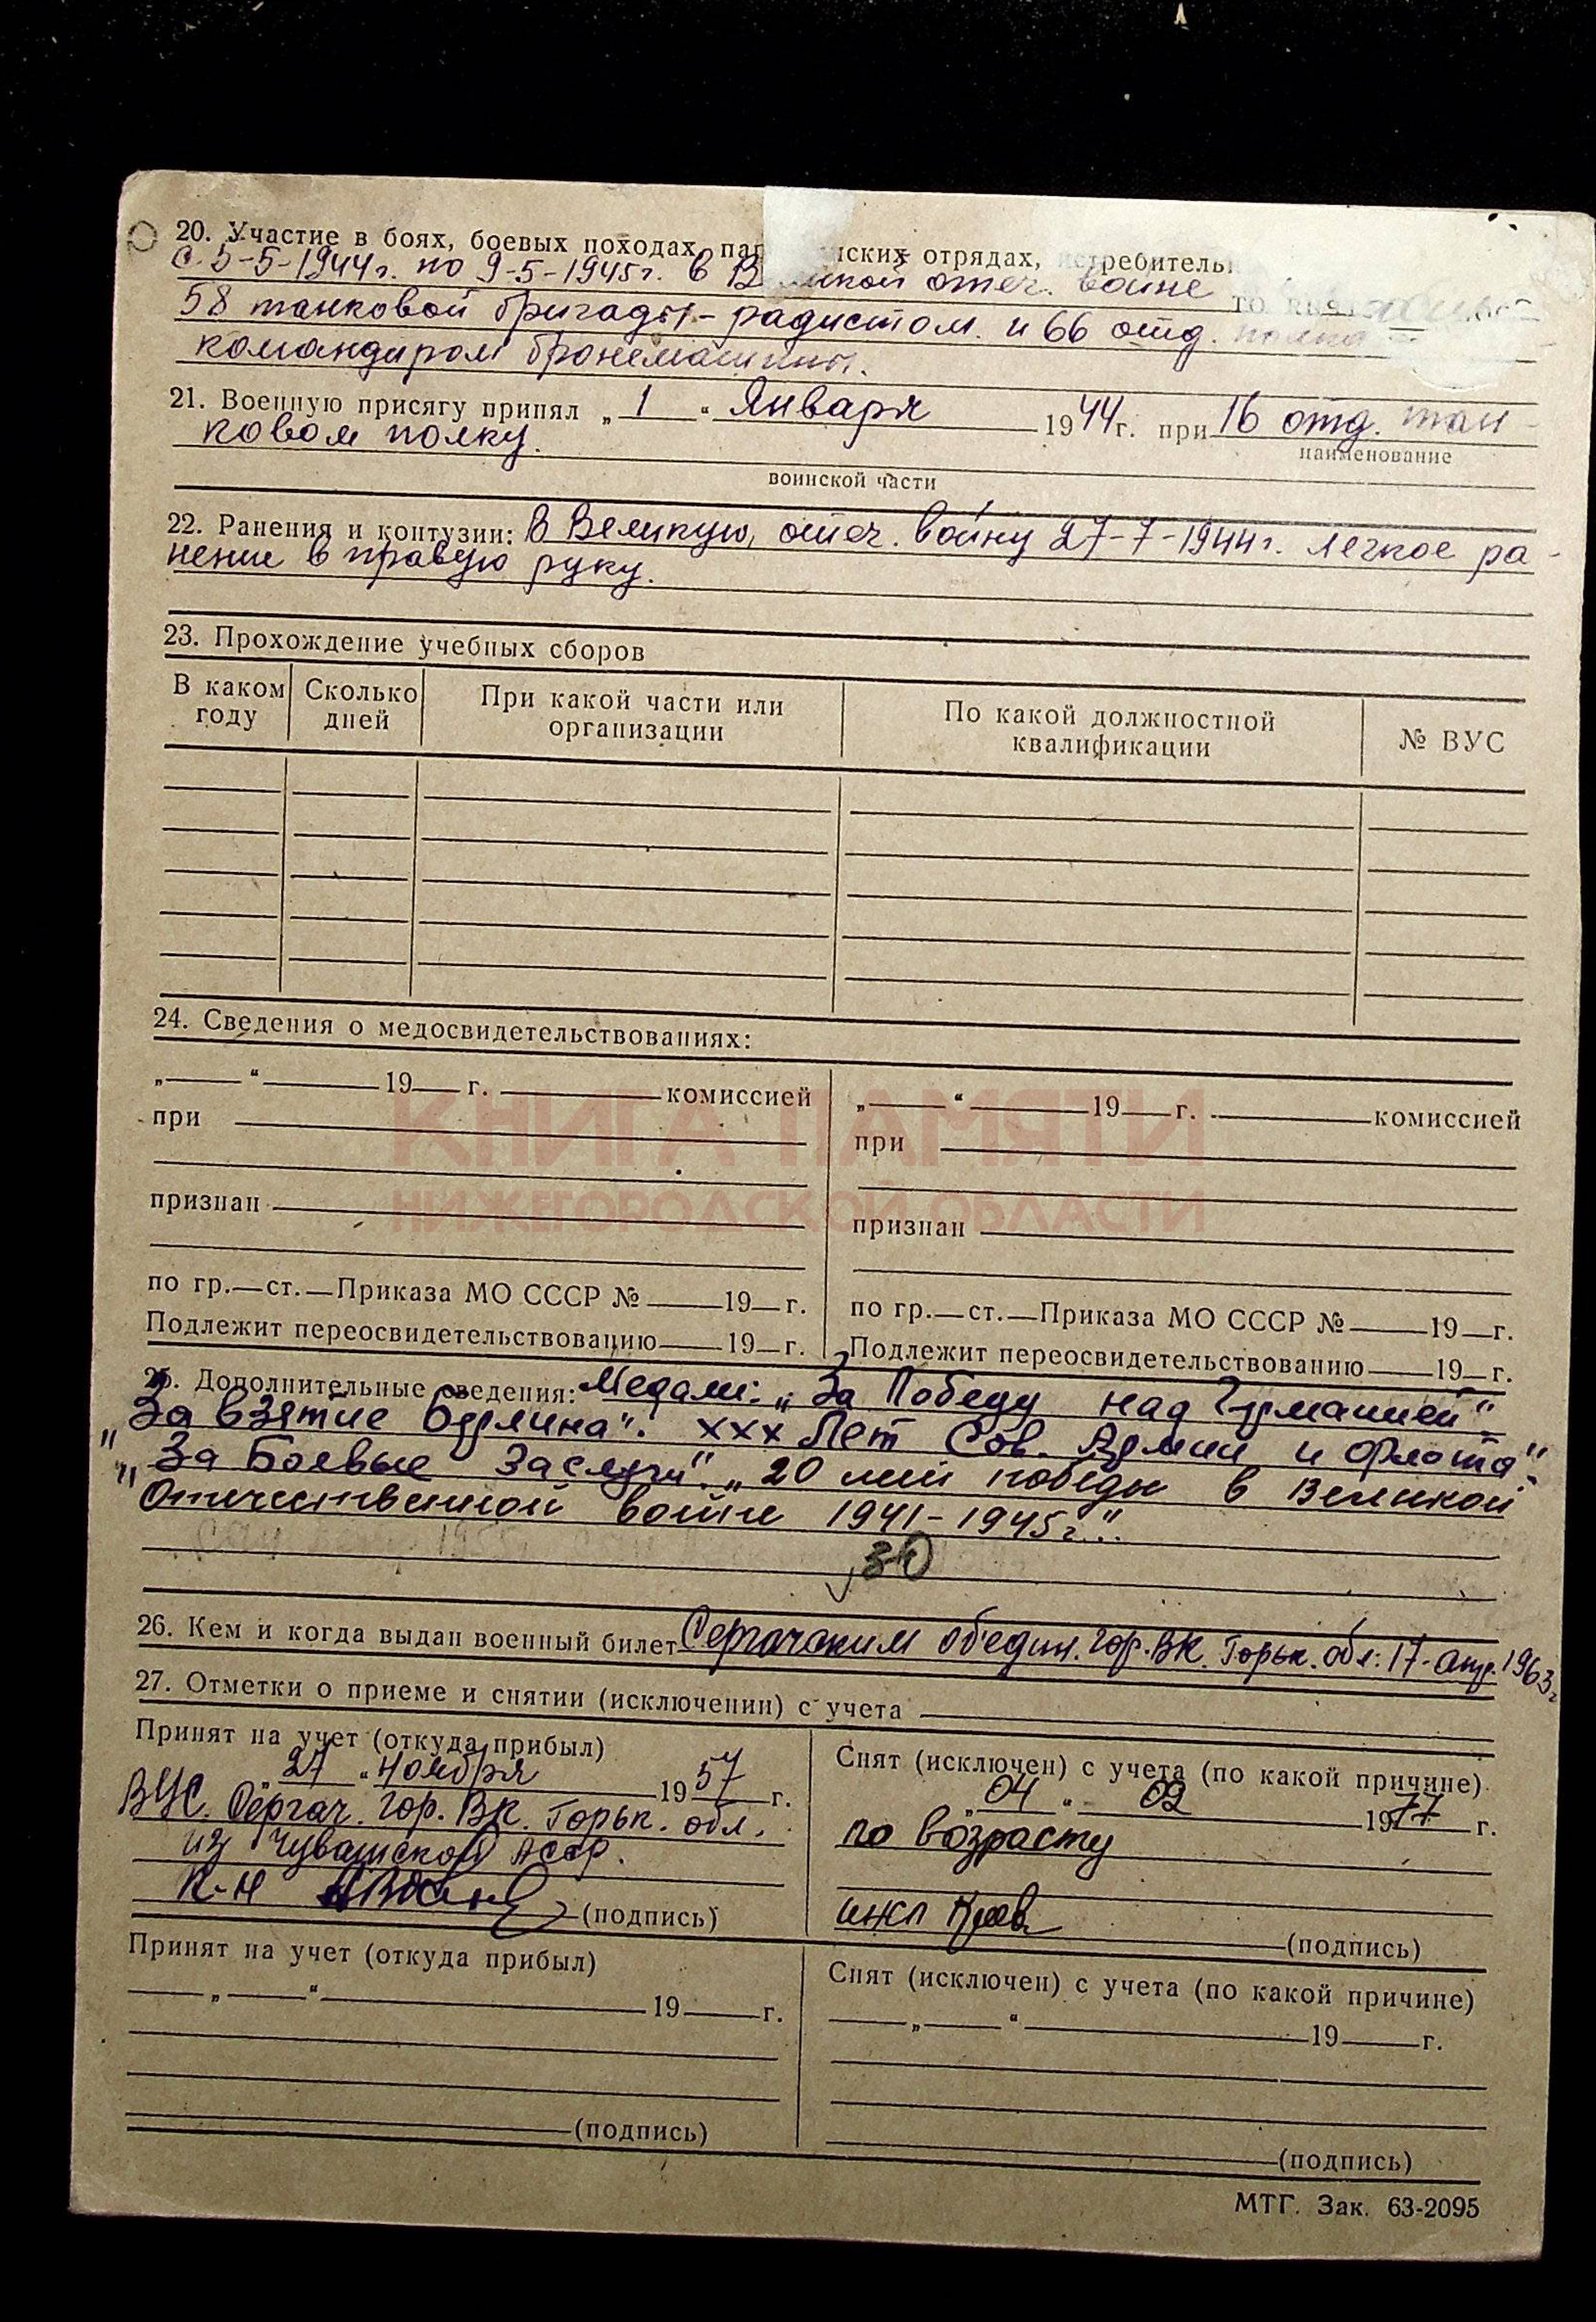 20. Участие в боях, боевых походах, пар нских отрядах, истребитель
с 5-5-1944г. по 9-5-1945г. в В икой отеч. войне
58 танковой бригады - радистом. и 66 отд. полка
командиром бронемашины.
21. Военную присягу принял „1“ Января 1944г. при 16 отд. тан-
наименование
ковом полку.
воинской части
22. Ранения и контузии: В Великую, отеч. войну 27-7-1944г. легкое ра-
нение в правую руку.
23. Прохождение учебных сборов
В каком году Сколько дней При какой части или организации По какой должностной квалификации № ВУС
24. Сведения о медосвидетельствованиях:
„ “ 19 г. комиссией
при
признан
по гр. ст. Приказа МО СССР № 19 г.
Подлежит переосвидетельствованию 19 г.
„ “ 19 г. комиссией
при
признан
по гр. ст. Приказа МО СССР № 19 г.
Подлежит переосвидетельствованию 19 г.
КНИГА ПАМЯТИ
НИЖЕГОРОДСКОЙ ОБЛАСТИ
25. Дополнительные сведения: Медали: „За Победу над Германией".
„За взятие Берлина". ХХХ Лет Сов. Армии и Флота".
„За Боевые Заслуги". „20 лет победы в Великой
Отечественной войне 1941-1945г.".
30
26. Кем и когда выдан военный билет Сергачским об'един. гор. ВК. Горьк. обл. 17-апр. 1963г
27. Отметки о приеме и снятии (исключении) с учета
Принят на учет (откуда прибыл)
„27“ ноября 1957 г.
ВУС. Сергач. гор. ВК. Горьк. обл.
из Чувашской АССР.
К-н
(подпись)
Снят (исключен) с учета (по какой причине)
„04“ 02 1977 г.
по возрасту
(подпись)
Принят на учет (откуда прибыл)
„ “ 19 г.
(подпись)
Снят (исключен) с учета (по какой причине)
„ “ 19 г.
(подпись)
МТГ. Зак. 63-2095